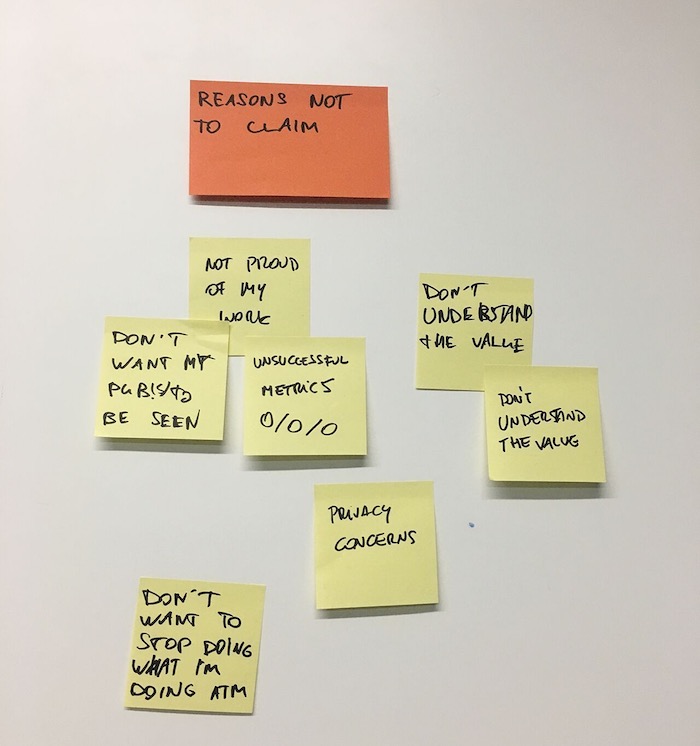 REASONS NOT
TO CLAIM
NOT PROUD
OF MY
WORK
DON'T
WANT MY
PUBS TO
BE SEEN
UNSUCCESSFUL
METRICS
0/0/0
DON'T
UNDERSTAND
THE VALUE
DON'T
UNDERSTAND
THE VALUE
PRIVACY
CONCERNS
DON'T
WANT TO
STOP DOING
WHAT I'M
DOING ATM